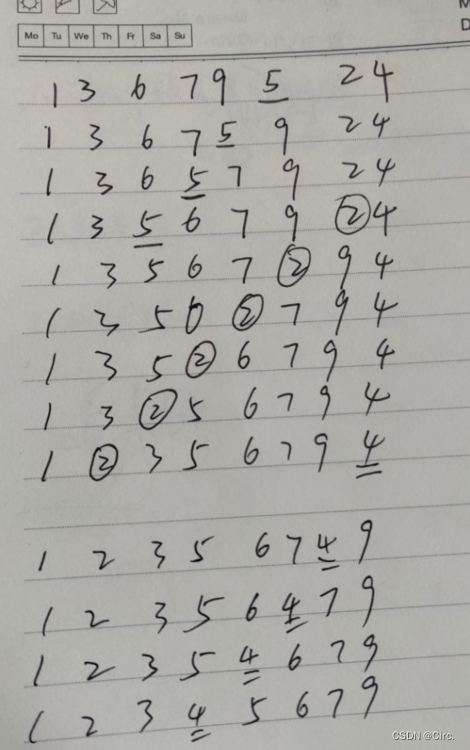 Mo Tu We Th Fr Sa Su
M
D
1 3 6 7 9 5 2 4
1 3 6 7 5 9 2 4
1 3 6 5 7 9 2 4
1 3 5 6 7 9 2 4
1 3 5 6 7 2 9 4
1 3 5 0 2 7 9 4
1 3 5 2 6 7 9 4
1 3 2 5 6 7 9 4
1 2 3 5 6 7 9 4
1 2 3 5 6 7 4 9
1 2 3 5 6 4 7 9
1 2 3 5 4 6 7 9
1 2 3 4 5 6 7 9
CSDN @Circ.